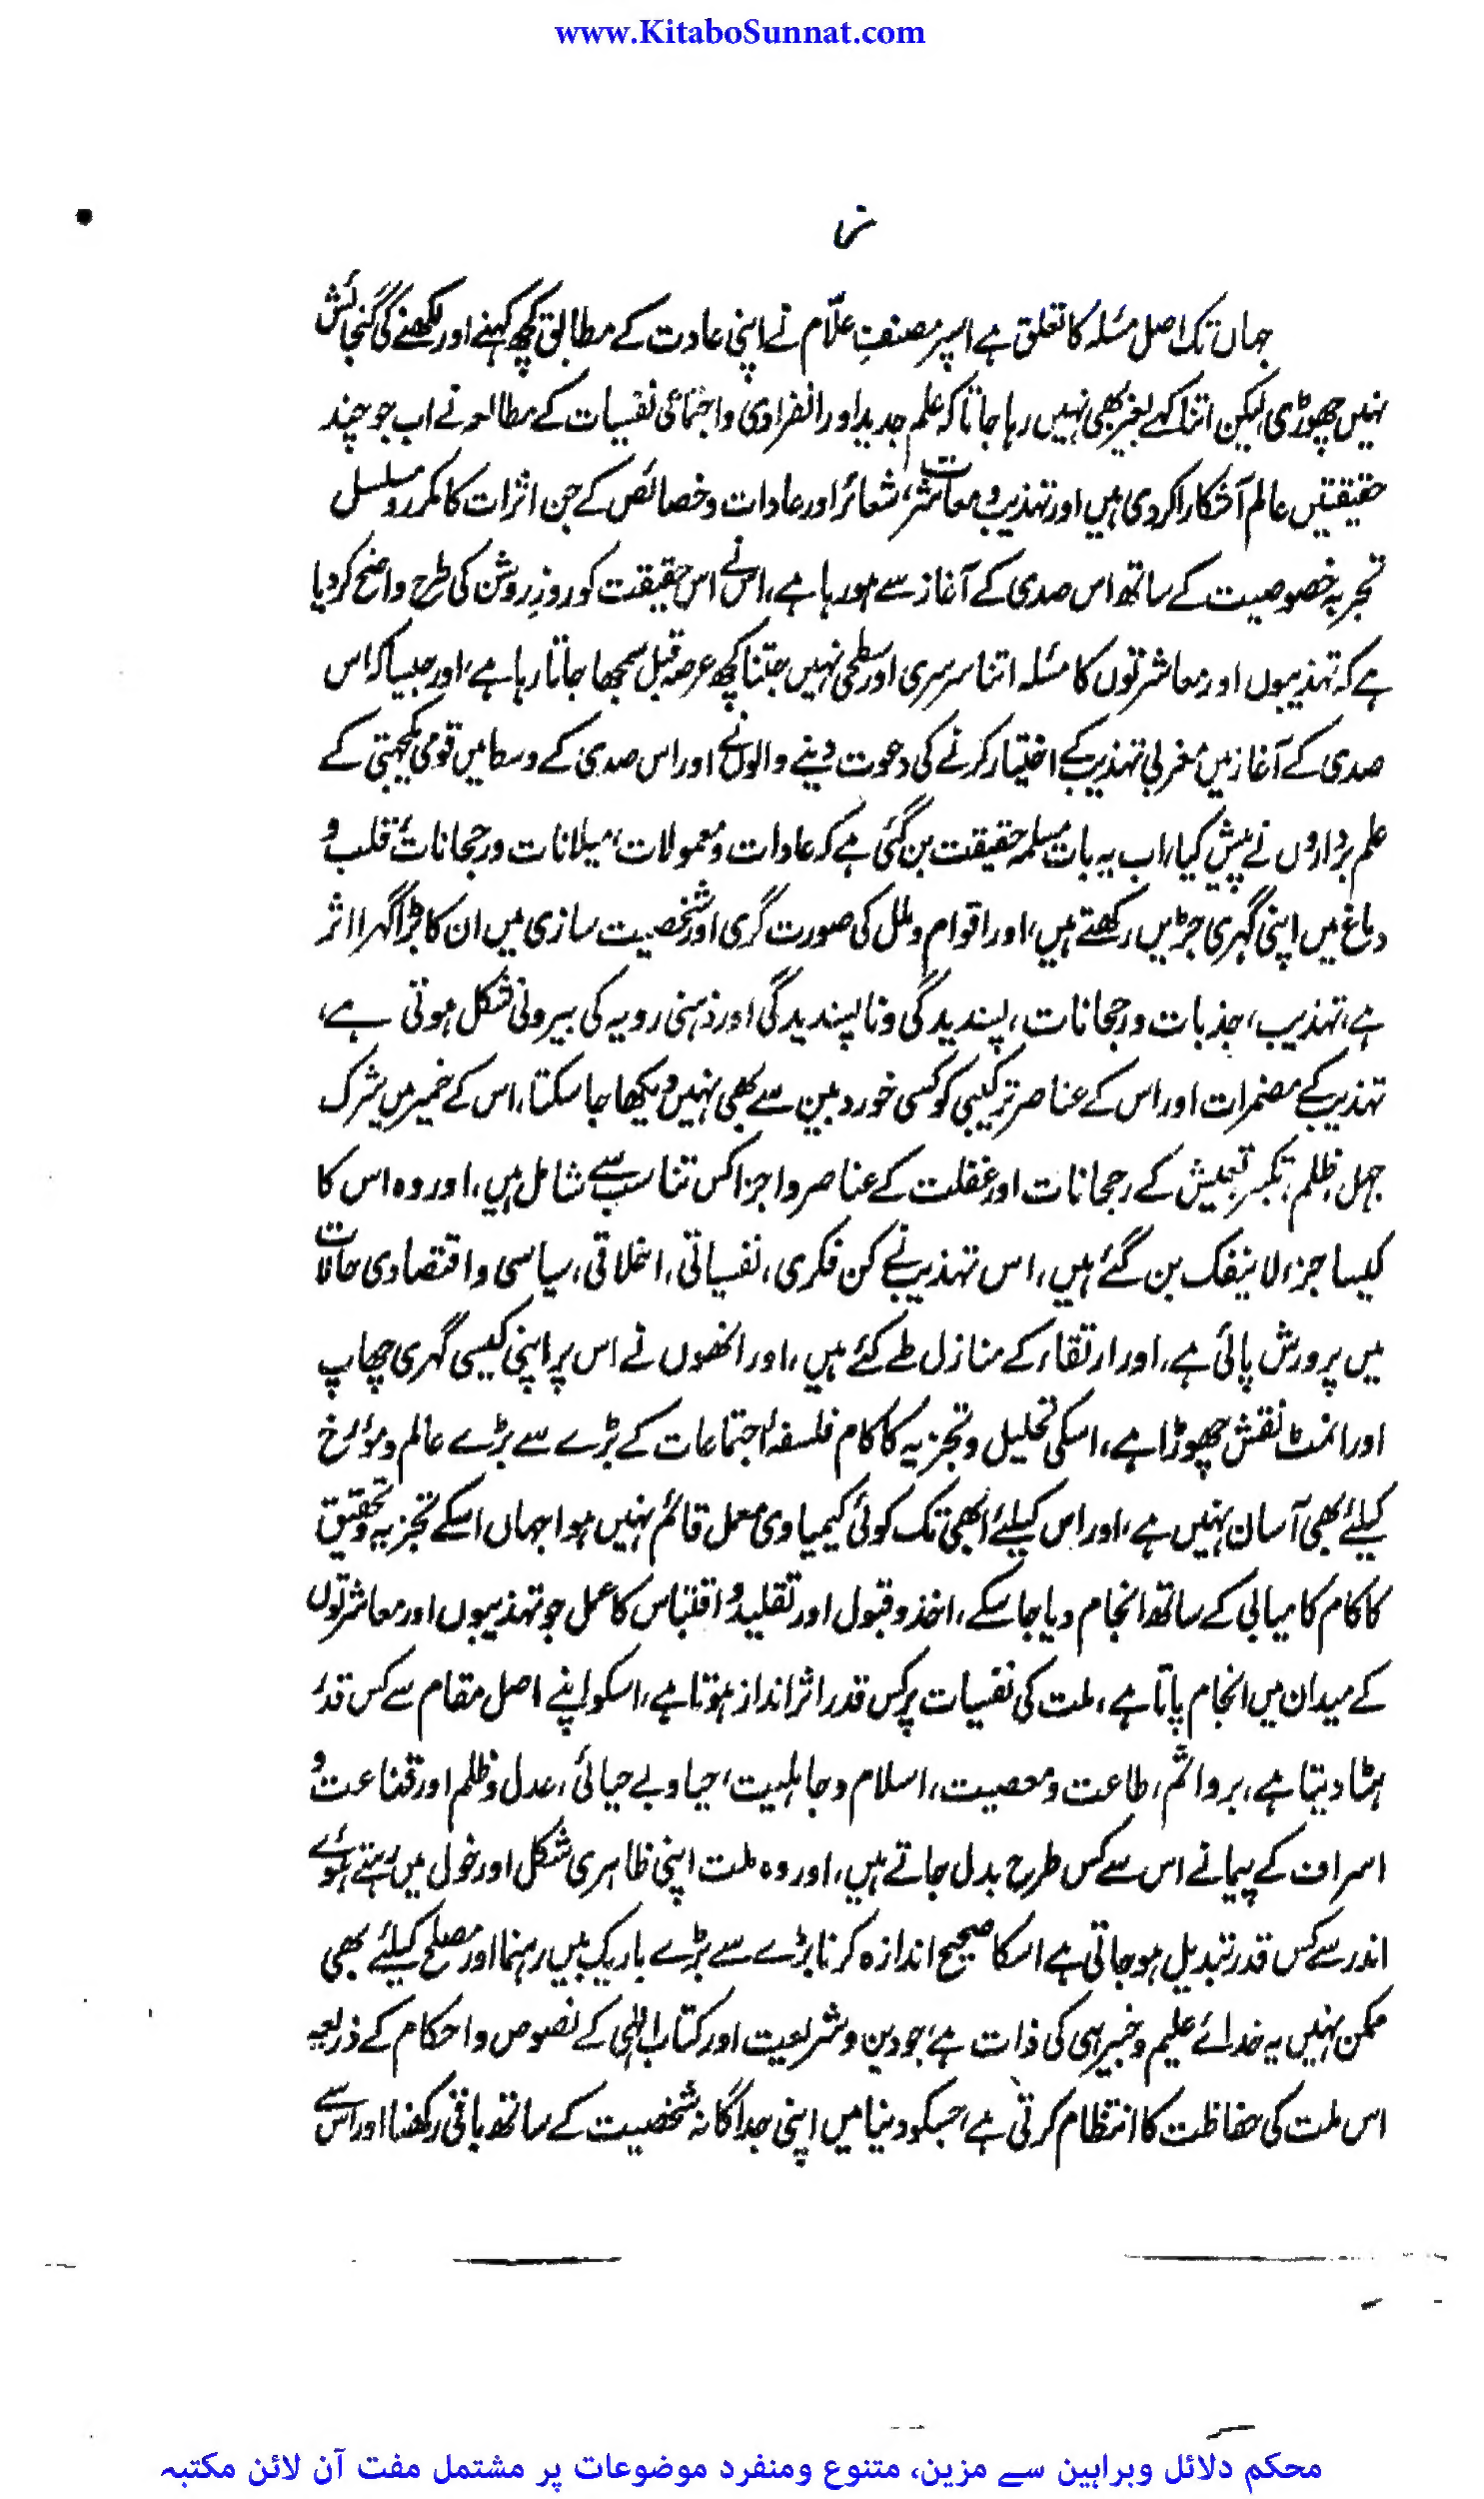 www.KitaboSunnat.com
ز
جہاں تک اصل مسئلہ کا تعلق ہے اسپر مصنفِ علّام نے اپنی عادت کے مطابق کچھ کہنے اور لکھنے کی گنجائش
نہیں چھوڑی لیکن اتنا کہے بغیر بھی نہیں رہا جاتا کہ علم جدید اور انفرادی و اجتماعی نفسیات کے مطالعہ نے اب جو چند
حقیقتیں عالم آشکارا کردی ہیں اور تہذیب و معاشرت، شعائر اور عادات و خصائص کے جن اثرات کا مکرر و مسلسل
تجربہ خصوصیت کے ساتھ اس صدی کے آغاز سے ہو رہا ہے، اس نے اس حقیقت کو روزِ روشن کی طرح واضح کر دیا
ہے کہ تہذیبوں اور معاشرتوں کا مسئلہ اتنا سرسری اور سطحی نہیں جتنا کچھ عرصہ قبل سمجھا جاتا رہا ہے، اور جیسا کہ اس
صدی کے آغاز میں مغربی تہذیب کے اختیار کرنے کی دعوت دینے والوں نے اور اس صدی کے وسط میں قومی یکجہتی کے
علم برداروں نے پیش کیا، اب یہ بات مسلمہ حقیقت بن گئی ہے کہ عادات و معمولات، میلانات و رجحانات، قلب و
دماغ میں اپنی گہری جڑیں رکھتے ہیں، اور اقوام و ملل کی صورت گری اور شخصیت سازی میں ان کا بڑا گہرا اثر
ہے، تہذیب، جذبات و رجحانات، پسندیدگی و ناپسندیدگی اور ذہنی رویہ کی بیرونی شکل ہوتی ہے،
تہذیب کے مضمرات اور اس کے عناصر ترکیبی کو کسی خورد بین سے بھی نہیں دیکھا جا سکتا، اس کے خمیر میں شرک
جہل، ظلم، تکبر، تعیش کے رجحانات اور غفلت کے عناصر و اجزا کس تناسب سے شامل ہیں، اور وہ اس کا
کیسا جزء لا ینفک بن گئے ہیں، اس تہذیب نے کن فکری، نفسیاتی، اخلاقی، سیاسی و اقتصادی حالات
میں پرورش پائی ہے، اور ارتقاء کے منازل طے کئے ہیں، اور انھوں نے اس پر اپنی کیسی گہری چھاپ
اور انمٹ نقش چھوڑا ہے، اسکی تحلیل و تجزیہ کا کام فلسفۂ اجتماعات کے بڑے سے بڑے عالم و مؤرخ
کیلئے بھی آسان نہیں ہے، اور اس کیلئے ابھی تک کوئی کیمیاوی معمل قائم نہیں ہوا جہاں اسکے تجزیہ و تحقیق
کا کام کامیابی کے ساتھ انجام دیا جا سکے، اخذ و قبول اور تقلید و اقتباس کا عمل جو تہذیبوں اور معاشرتوں
کے میدان میں انجام پاتا ہے، ملت کی نفسیات پر کس قدر اثر انداز ہوتا ہے، اسکو اپنے اصل مقام سے کس قدر
ہٹا دیتا ہے، بر و اثم، طاعت و معصیت، اسلام و جاہلیت، حیا و بے حیائی، عدل و ظلم اور قناعت و
اسراف کے پیمانے اس سے کس طرح بدل جاتے ہیں، اور وہ ملت اپنی ظاہری شکل اور خول میں رہتے ہوئے
اندر سے کس قدر تبدیل ہو جاتی ہے اسکا صحیح اندازہ کرنا بڑے سے بڑے باریک بیں رہنما اور مصلح کیلئے بھی
ممکن نہیں یہ خدائے علیم و خبیر ہی کی ذات ہے، جو دین و شریعت اور کتاب الٰہی کے نصوص و احکام کے ذریعہ
اس ملت کی حفاظت کا انتظام کرتی ہے، جسکو دنیا میں اپنی جداگانہ شخصیت کے ساتھ باقی رکھنا اور اس سے
محکم دلائل وبراہین سے مزین، متنوع ومنفرد موضوعات پر مشتمل مفت آن لائن مکتبہ